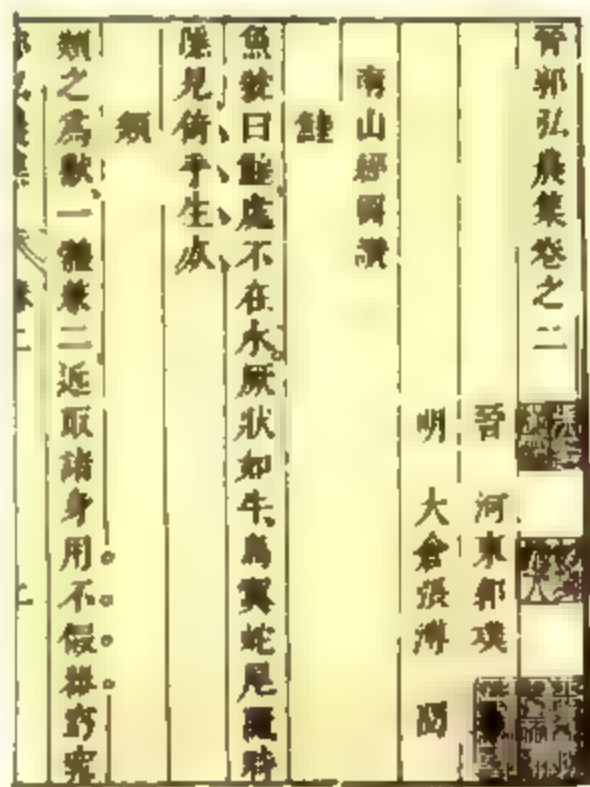 晉郭弘農集卷之二
晉 河東郭璞
明 太倉張溥 閱
南山經圖讚
鯥
魚號曰鯥處不在水厥狀如牛鳥翼蛇尾隨時
隱見倚乎生死
類
類之為獸一體兼二近取諸身用不假器窈窕